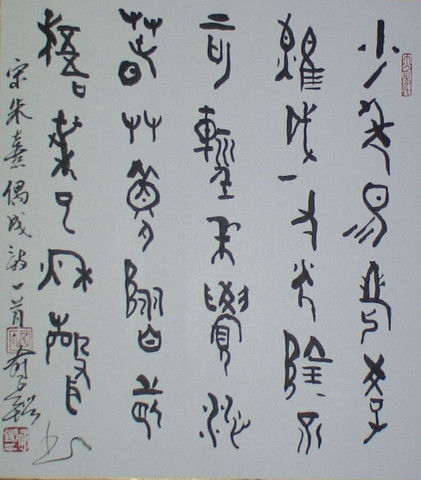 少年易老學
難成一寸光陰不
可輕未覺池
春草夢階前
梧葉已秋聲
宋朱熹偶成詩一首